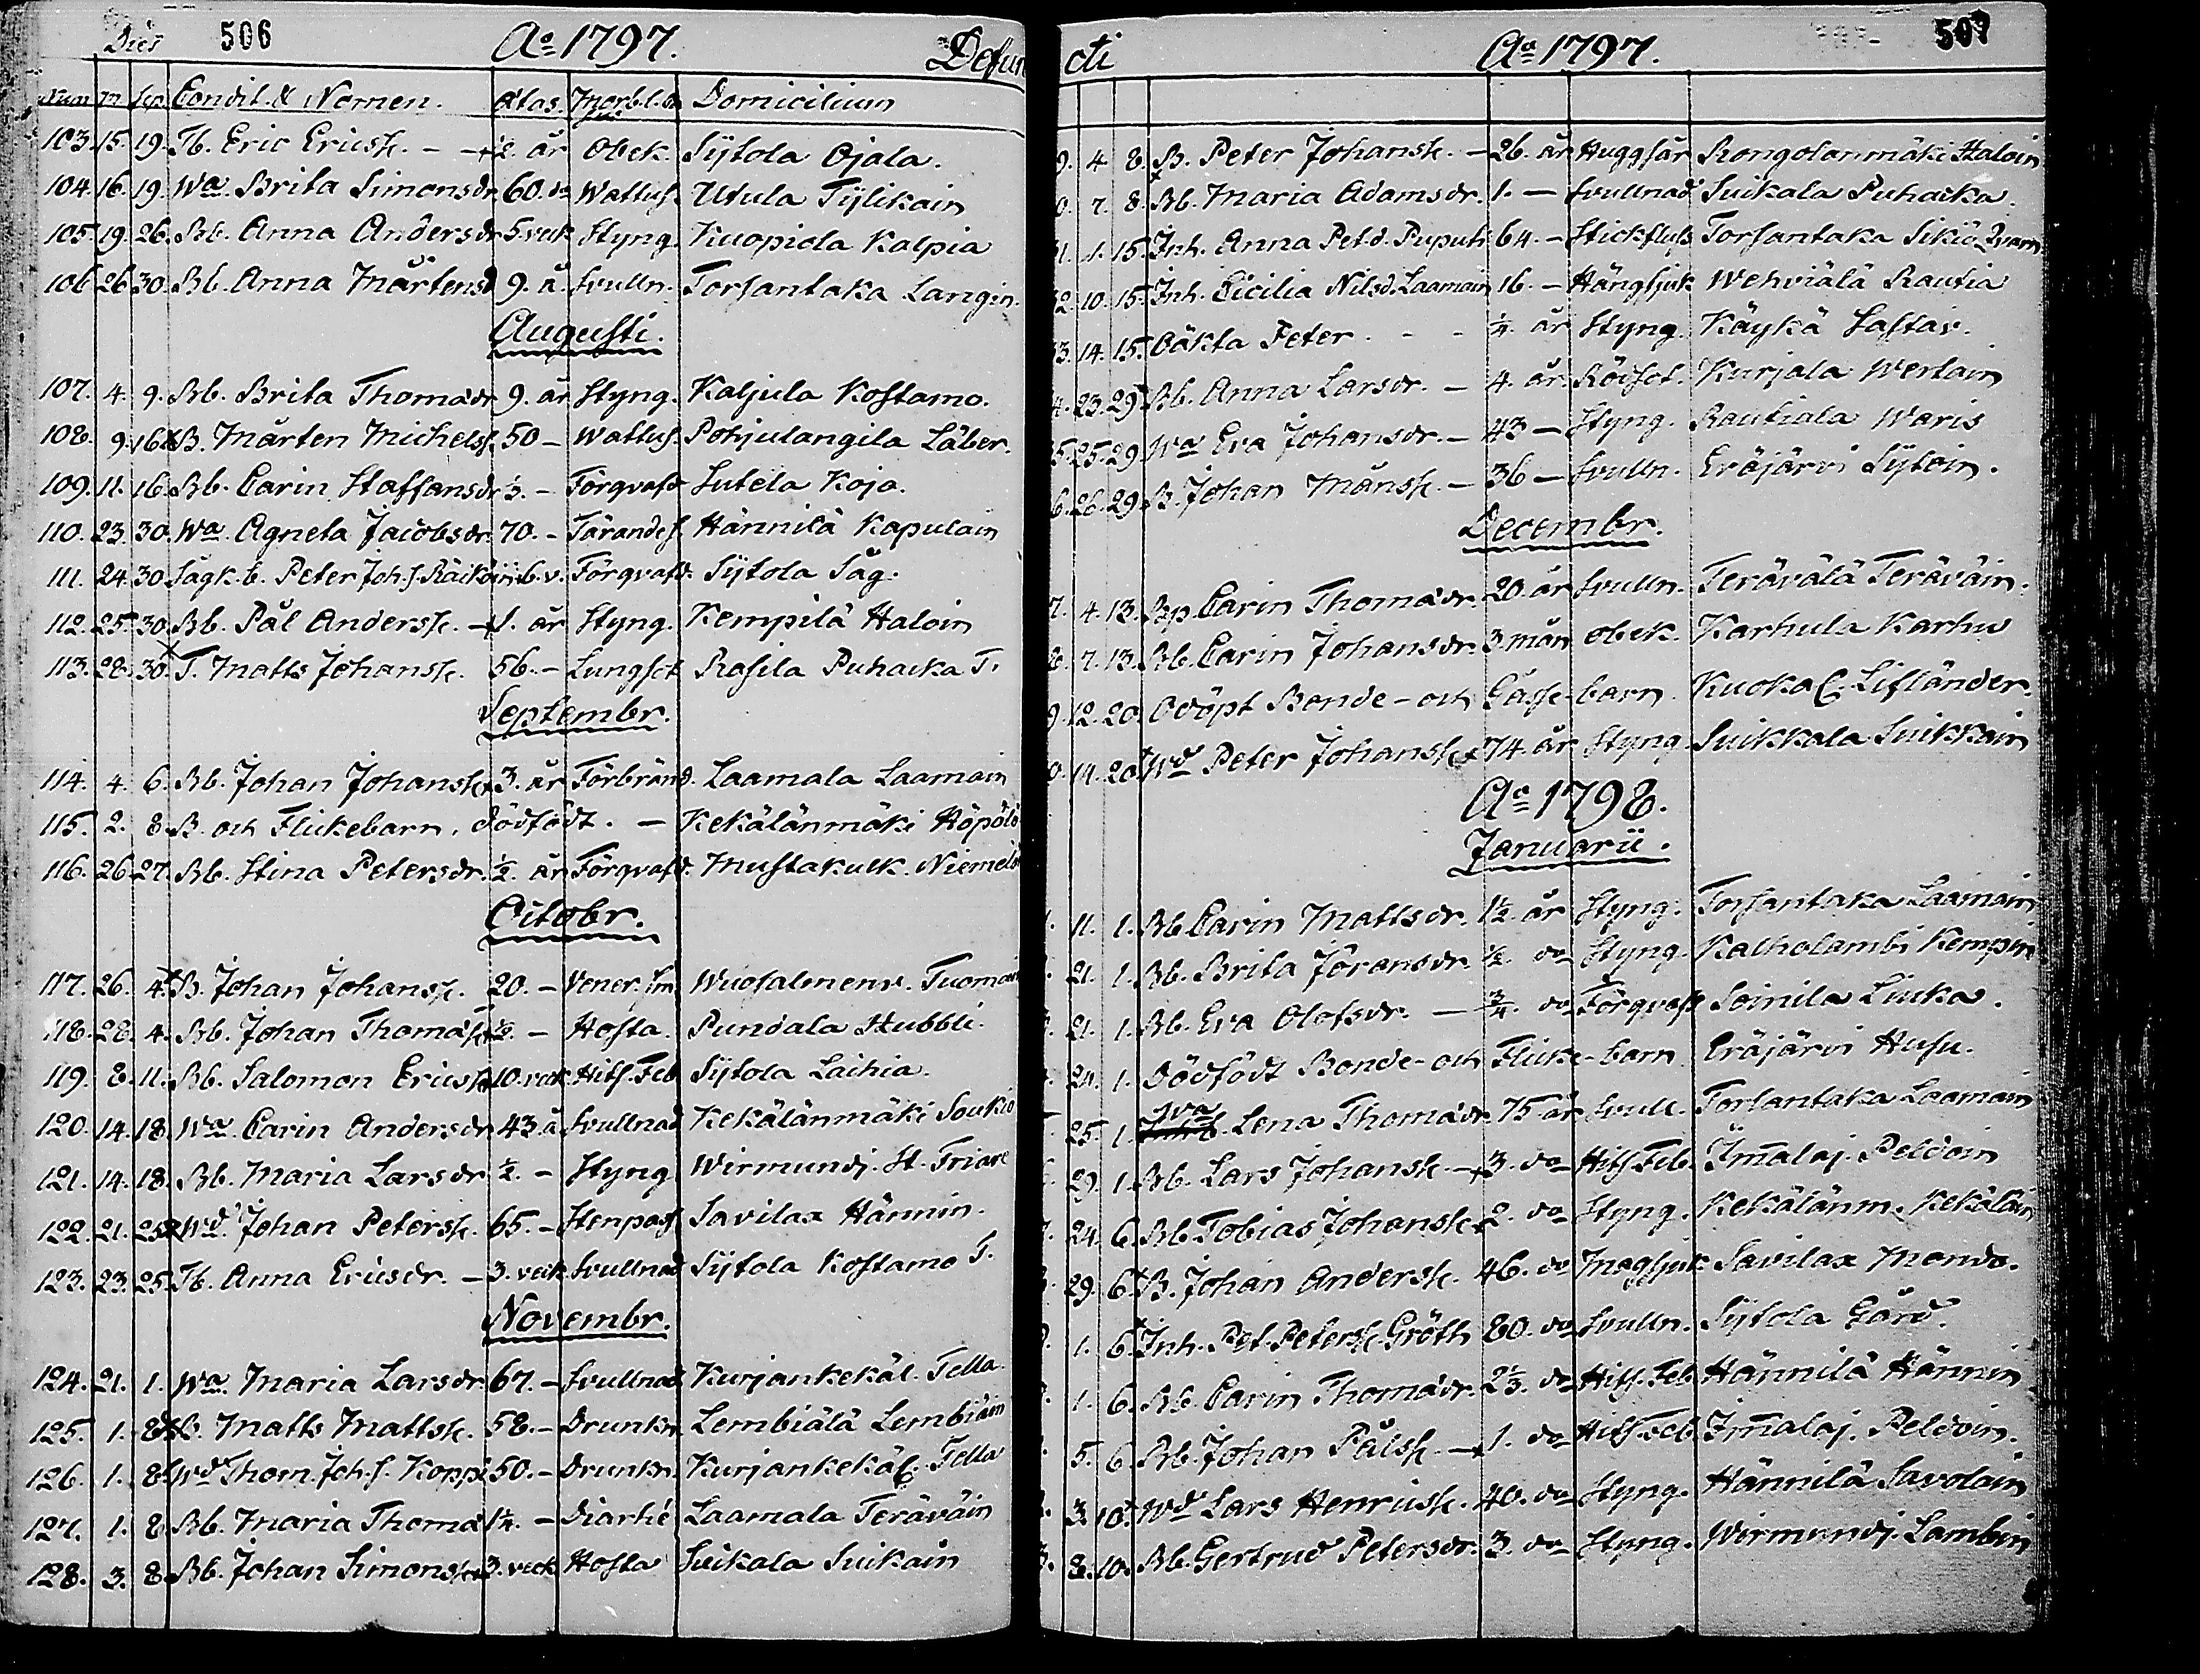 Dies 506 Ao 1797. Defun
Num m Sep Condit. & Nomen. Ætas. Morb. Domicilium
103. 15. 19. Tb. Eric Ericss. - - ½. år Obek. Sÿtola Ojala.
104. 16. 19. Wa. Brita Simonsdr. 60. do Wattus. Utula Tÿlikain
105. 19. 26. Bb. Anna Andersdr 5 veck Styng. Kuopiola Kalpia
106. 26. 30. Bb. Anna Mårtensd 9. å. Svulln. Torsantaka Langin.
Augusti.
107. 4. 9. Bb. Brita Thomædr 9. år Styng. Kaljula Kostamo.
108. 9. 16. B. Mårten Michelss. 50 - Wattus. Pohjulangila Läber.
109. 11. 16. Bb. Carin Staffansdr ½. - Förqvafd Sutela Kojo.
110. 23. 30. Wa. Agneta Jacobsdr. 70. - Tärandes. Hännilä Kapulain
111. 24. 30. Sågk. b. Peter Joh.s. Räiköin 6. v. Förqvafd. Sÿtola Såg.
112. 25. 30. Bb. Pål Anderss. - 1. år Styng. Kempilä Haloin
113. 28. 30. T. Matts Johanss. 56. - Lungsot Rasila Puhacka T.
Septembr.
114. 4. 6. Bb. Johan Johanss. 3. år Förbränd. Laamala Laamain
115. 2. 8. B. och Flickebarn. dödfödt. - Kekälänmäki Höpölö
116. 26. 27. Bb. Stina Petersdr. ½. år Förqvafd. Mustakulk. Niemelä
Octobr.
117. 26. 4. B. Johan Johanss. 20. - Vener. sm Wuosalmenv. Tuomas
118. 28. 4. Bb. Johan Thomæs. ½. - Hosta. Pundala Hubbli.
119. 8. 11. Bb. Salomon Ericss. 10. veck Hits. Feb Sÿtola Laihia.
120. 14. 18. Wa. Carin Andersdr 43. å Svullnad Kekälänmäki Soukio
121. 14. 18. Bb. Maria Larsdr ½. - Styng Wirmundj. St. Friare
122. 21. 25. Wd. Johan Peterss. 65. - Stenpass Savilax Hännin.
123. 23. 25. Tb. Anna Ericsdr. - 3. veck Svullnad Sÿtola Kostamo T.
Novembr.
124. 21. 1. Wa. Maria Larsdr 67. - Svullnad Kurjankekäl. Tella.
125. 1. 8. B. Matts Mattss. 58. - Drunkn. Lembiälä Lembiäin
126. 1. 8. Wd Thom. Joh.s. Koppi 50. - Drunkn. Kurjankekäl. Tella
127. 1. 8. Bb. Maria Thomæ 1¼. - Diarhé Laamala Teräväin
128. 3. 8. Bb. Johan Simonss. 3. veck Hosta Suikala Suikain
cti Ao 1797. 507
9. 4 8. B. Peter Johanss. - 26. år Huggsår Rongolanmäki Haloin
0. 7. 8. Bb. Maria Adamsdr. 1. - Svullnad Suikala Puhacka.
1. 1. 15. Inh. Anna Pet.d. Puputi 64. - Stickfluss Torsantaka Sikiö Qvarn
2. 10. 15. Inh. Cicilia Nilsd. Laamain 16. - Hängsjuk Wehviälä Rautia
3. 14. 15. Oäkta Peter. - - ¼. år Styng. Käykä Lastar.
4. 23. 29. Bb. Anna Larsdr. - 4. år Rödsot. Kurjala Wertain
5. 25. 29. Wa Eva Johansdr. - 43 - Styng. Rautiala Waris
6. 26. 29. B. Johan Månss. - 36 - Svulln. Eräjärvi Sÿtoin.
Decembr.
7. 4. 13. Bp. Carin Thomædr. 20. år Svulln. Terävälä Teräväin.
8. 7. 13. Bb. Carin Johansdr. 3. mån obek. Karhula Karhu
9. 12. 20. Odöpt Bonde- och Gåsse-barn. Kuoka C. Lifländer.
0. 14. 20. Wd Peter Johanss. 74. år Styng Suikkala Suikkain
Ao 1798.
Januarii.
11. 1. Bb. Carin Mattsdr. 1½. år Styng. Torsantaka Laamain
21. 1. Bb. Brita Jöransdr. ½. do Styng. Kalholambi Kempin
21. 1. Bb. Eva Olofsdr. - ¾. do Förqvafd Soinila Liuka.
24. 1. Dödfödt Bonde- och Flicke-barn Eräjärvi Husu.
25. 1. Lena Thomædr. 75 år Svull. Torsantaka Laamain
29. 1. Bb. Lars Johanss. - 3. do Hits. Feb. Imalaj. Peldoin
24. 6. Bb. Tobias Johanss. 2. do Styng. Kekälänm. Kekäläin
29. 6. B. Johan Anderss. 46. do Magsjuk Savilax Mondo.
1. 6. Inh. Pet. Peterss. Gröth 80. do Svulln. Sÿtola Gård.
1. 6. Bb. Carin Thomædr. 2½. do Hits. Feb Hännilä Hännin
5. 6. Bb. Johan Pålss. - 1. do Hits. Feb Imalaj. Peldoin.
3. 10. Wd Lars Henricss. 40. do Styng. Hännilä Savolain
8. 10. Bb. Gertrud Petersdr. 3. do Styng. Wirmundj. Lambin